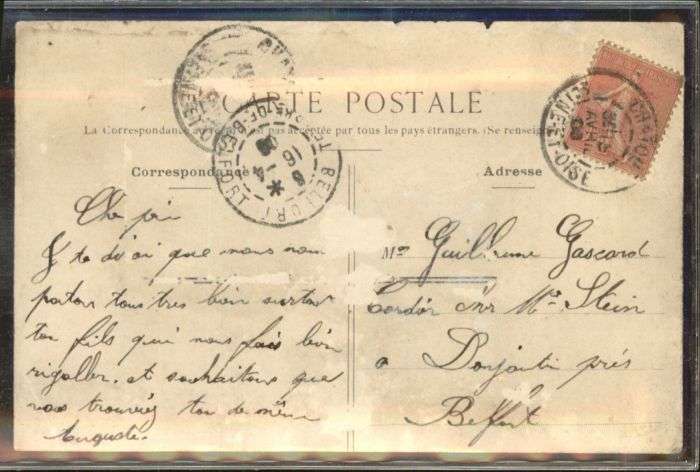 CARTE POSTALE
La Correspondance au est pas acceptée par tous les pays étrangers. (Se renseign
Correspondance
Adresse
CHATOU
SEINE-ET-OISE
BELFORT
16
8
4
je te dirai que nous nous
portons tous très bien surtout
ton fils qui nous fais bien
rigoller. et souhaitons que
vous trouviez tou de même
Auguste.
Mr Guillaume Gascard
chez Mr Stein
a Danjoutin près
Belfort